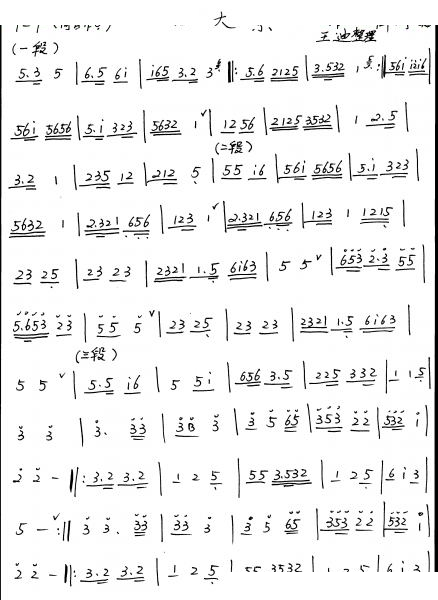 大
王迪整理
(一段)
5.3 5 | 6.5 6i | i65 3.2 3 ‖: 5.6 2125 | 3.532 1 :‖ 56i i2i6 |
56i 5656 | 5.i 323 | 5632 1 ˅ | 12 56 | 2125 3532 | 1 2.5 |
(二段)
3.2 1 | 235 12 | 212 5 | 55 i6 | 56i 5656 | 5.i 323 |
5632 1 | 2.321 656 | 123 1 ˅ | 2.321 656 | 123 1 1215 |
23 25 | 23 23 | 2321 1.5 6163 | 5 5 ˅ | 653 2.3 55 |
5.653 23 | 55 5 ˅ | 23 25 | 23 23 | 2321 1.5 6163 |
(三段)
5 5 ˅ | 5.5 i6 | 5 5i | 656 3.5 | 225 332 | 1 1.5 |
3 3 | 3. 33 | 3 | 3 5 65 | 353 22 | 532 i |
2 2 - ‖: 3.2 3.2 | 1 2 5 | 55 3.532 | 1 2 5 | 6 i 3 |
5 - ˅ :‖ 3 3. 33 | 33 3 | 3 5 65 | 353 22 | 532 i |
2 2 - ‖: 3.2 3.2 | 1 2 5 | 55 3532 | 1 2 5 | 6 i